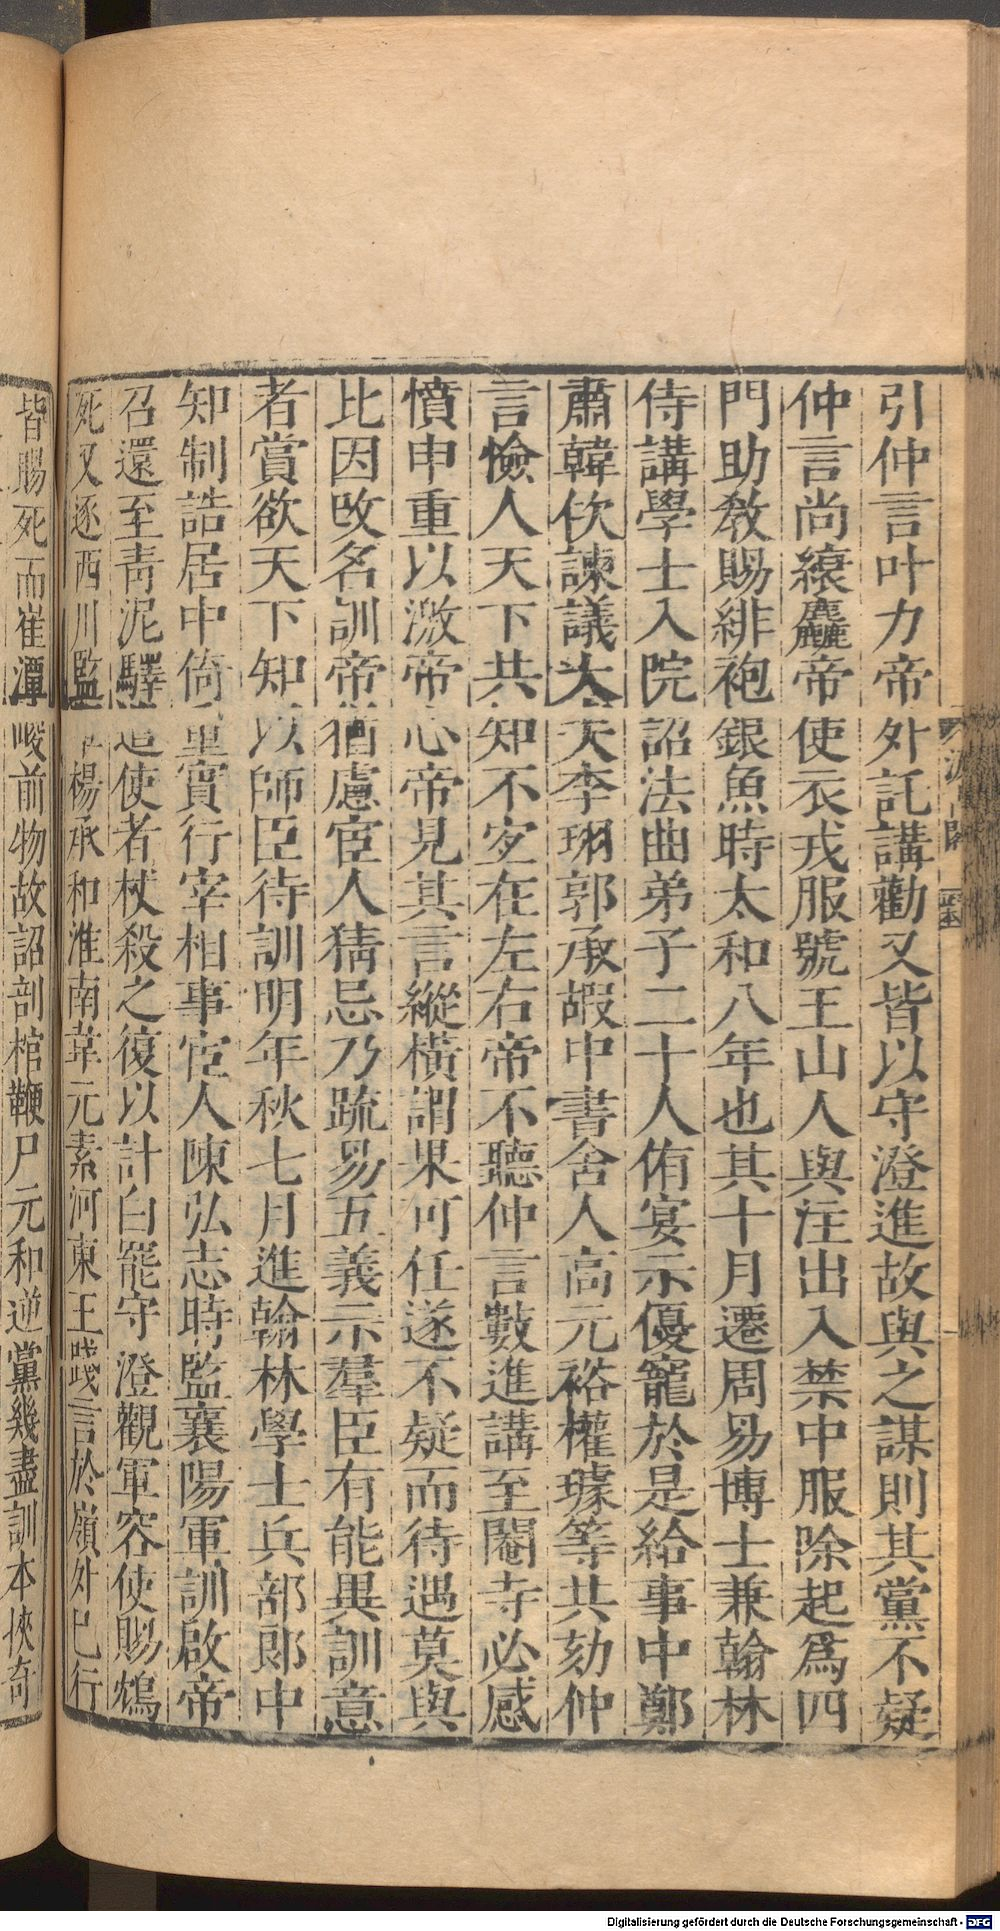 引仲言叶力帝外託講勸又皆以守澄進故與之謀則其黨不疑
仲言尚縗麤帝使衣戎服號王山人與注出入禁中服除起爲四
門助敎賜緋袍銀魚時太和八年也其十月遷周易博士兼翰林
侍講學士入院詔法曲弟子二十人侑宴示優寵於是給事中鄭
肅韓佽諫議大夫李珝郭承嘏中書舍人高元裕權璩等共劾仲
言憸人天下共知不宐在左右帝不聽仲言數進講至閹寺必感
憤申重以激帝心帝見其言縱橫謂果可任遂不疑而待遇莫與
比因攺名訓帝猶慮宦人猜忌乃疏易五義示羣臣有能異訓意
者賞欲天下知以師臣待訓明年秋七月進翰林學士兵部郎中
知制誥居中倚重實行宰相事宦人陳弘志時監襄陽軍訓啟帝
召還至靑泥驛遣使者杖殺之復以計白罷守澄觀軍容使賜鴆
死又逐西川監軍楊承和淮南韋元素河東王踐言於嶺外已行
皆賜死而崔潭峻前物故詔剖棺鞭尸元和逆黨幾盡訓本挾奇
Digitalisierung gefördert durch die Deutsche Forschungsgemeinschaft - DFG